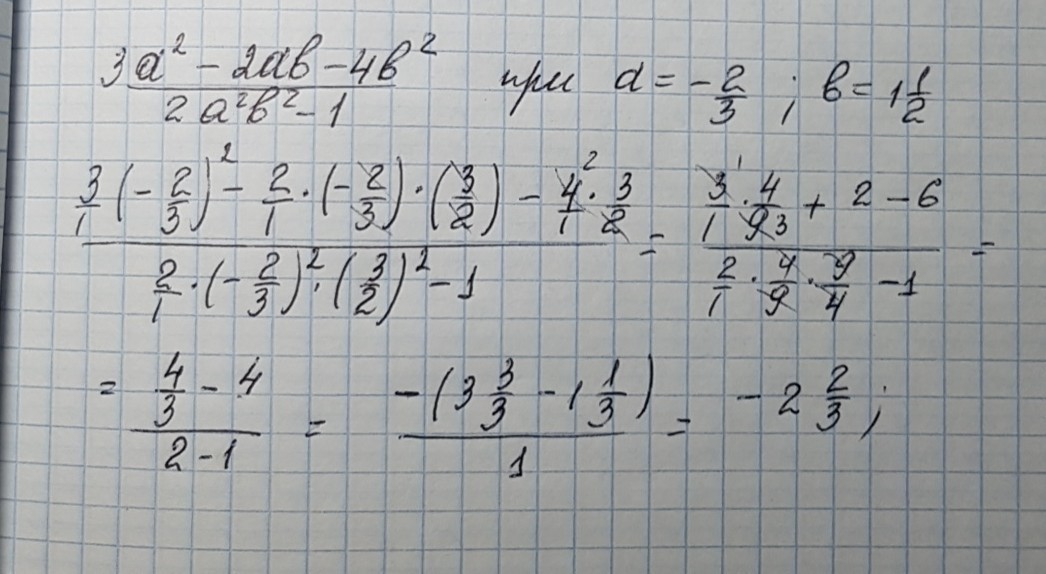 (3a² − 2ab − 4b²)/(2a²b² − 1) при a = −2/3 ; b = 1 1/2
(3/1 (−2/3)² − 2/1 · (−2/3) · (3/2) − 4/1 ² · 3/2)/(2/1 · (−2/3)² · (3/2)² − 1) = (3/1 ¹ · 4/9 3 + 2 − 6)/(2/1 · 4/9 · 9/4 − 1) =
= (4/3 − 4)/(2 − 1) = (−(3 3/3 − 1 1/3))/1 = −2 2/3 ;